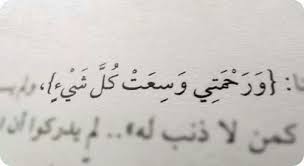 ـا: {وَرَحْمَتِي وَسِعَتْ كُلَّ شَيْءٍ}، ولم
كمن لا ذنب له».. لم يدركوا أن